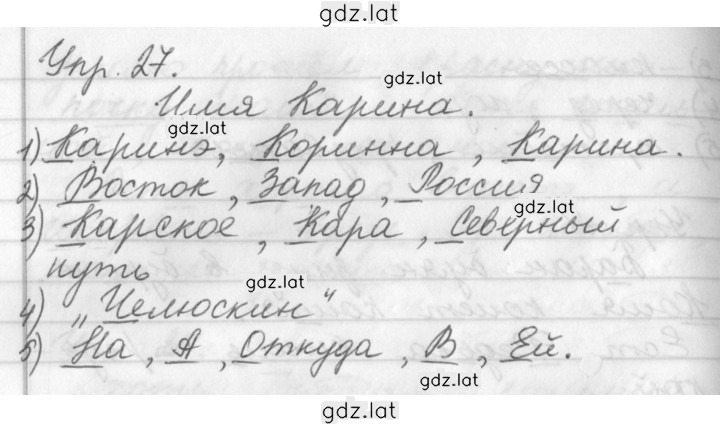 gdz.lat
Упр. 27.
gdz.lat
Имя Карина.
gdz.lat
1) Каринэ, Коринна, Карина.
2) Восток, Запад, Россия
gdz.lat
3) Карское, Кара, Северный
путь
gdz.lat
4) „Челюскин“
5) На, А, Откуда, В, Ей.
gdz.lat
gdz.lat